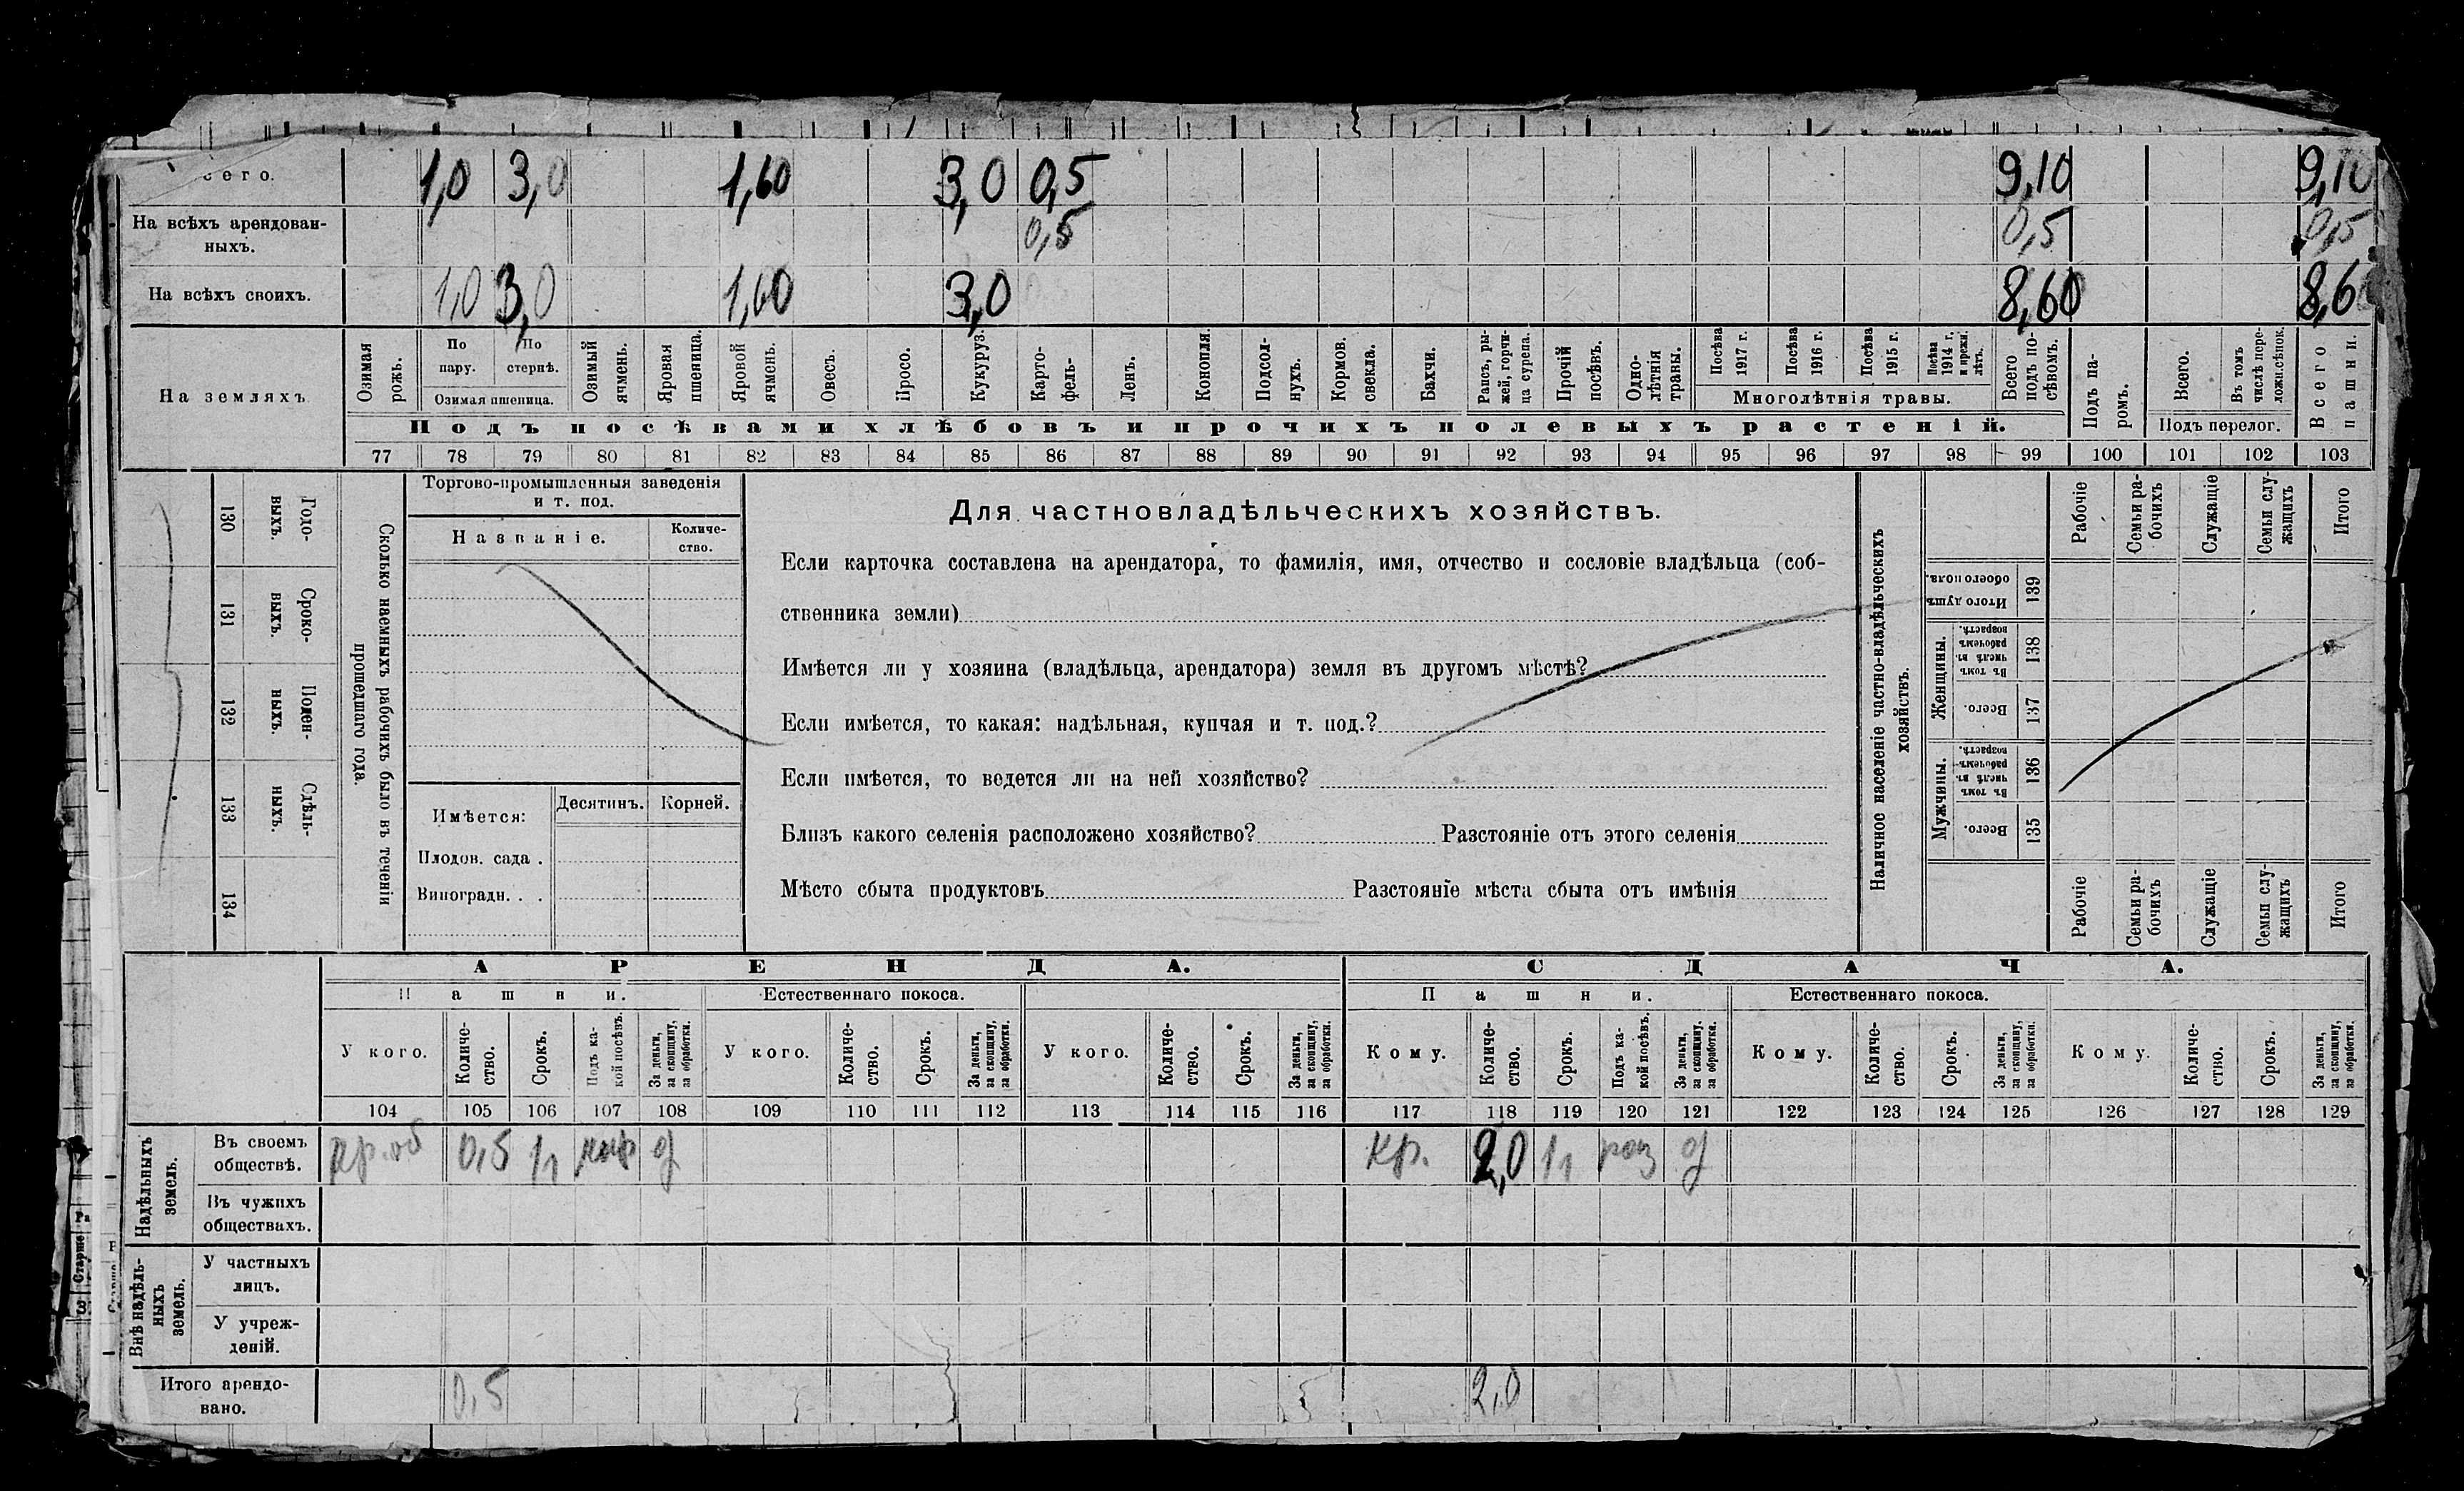 сего. 1,0 3,0 1,60 3,0 0,5 9,10 9,10
На всѣхъ арендован-
ныхъ. 0,5 0,5 0,5
На всѣхъ своихъ. 1,0 3,0 1,60 3,0 8,60 8,6
На земляхъ
Озимая рожь.
По пару.
По стернѣ.
Озимая пшеница.
Озимый ячмень.
Яровая пшеница.
Яровой ячмень.
Овесъ.
Просо.
Кукуруз.
Карто-
фель-
Ленъ.
Конопля.
Подсол-
нухъ.
Кормов.
свекла.
Бахчи.
Рапсъ, ры-
жей, горчи-
ца сурепа.
Прочій
посѣвъ.
Одно-
лѣтнія
травы.
Посѣва
1917 г.
Посѣва
1916 г.
Посѣва
1915 г.
Посѣва
1914 г.
и прежн.
лѣтъ.
Многолѣтнія травы.
Всего
подъ по-
сѣвомъ.
Подъ па-
ромъ.
Всего.
Въ томъ
числѣ пере-
ложн.сѣнок.
Подъ перелог.
Всего
пашни.
Подъ посѣвами хлѣбовъ и прочихъ полевыхъ растеній.
77 78 79 80 81 82 83 84 85 86 87 88 89 90 91 92 93 94 95 96 97 98 99 100 101 102 103
130 Годо-
выхъ.
131 Сроко-
выхъ.
132 Поден-
ныхъ.
133 Сдѣль-
ныхъ.
134
Сколько наемныхъ рабочихъ было въ теченіи
прошедшаго года.
Торгово-промышленныя заведенія
и т. под.
Названіе.
Количе-
ство.
Имѣется:
Десятин. Корней.
Плодов. сада .
Виноградн. . .
Для частновладѣльческихъ хозяйствъ.
Если карточка составлена на арендатора, то фамилія, имя, отчество и сословіе владѣльца (соб-
ственника земли)
Имѣется ли у хозяина (владѣльца, арендатора) земля въ другомъ мѣстѣ?
Если имѣется, то какая: надѣльная, купчая и т. под.?
Если имѣется, то ведется ли на ней хозяйство?
Близъ какого селенія расположено хозяйство? Разстояніе отъ этого селенія
Мѣсто сбыта продуктовъ Разстояніе мѣста сбыта отъ имѣнія
Наличное населеніе частно-владѣльческихъ
хозяйствъ.
Рабочіе
Семьи ра-
бочихъ
Служащіе
Семьи слу-
жащихъ
Итого
Итого душъ
обоего пола.
139
Женщины.
Въ томъ
числѣ въ
рабочемъ
возрастѣ.
138
Всего.
137
Мужчины.
Въ томъ
числѣ въ
рабочемъ
возрастѣ.
136
Всего.
135
Рабочіе
Семьи ра-
бочихъ
Служащіе
Семьи слу-
жащихъ
Итого
АРЕНДА. СДАЧА.
Пашни. Естественнаго покоса. Пашни. Естественнаго покоса.
У кого.
Количе-
ство.
Срокъ.
Подъ ка-
кой посѣвъ.
За деньги,
за скопщину,
за обработки.
У кого.
Количе-
ство.
Срокъ.
За деньги,
за скопщину,
за обработки.
У кого.
Количе-
ство.
Срокъ.
За деньги,
за скопщину,
за обработки.
Кому.
Количе-
ство.
Срокъ.
Подъ ка-
кой посѣвъ.
За деньги,
за скопщину.
за обработки.
Кому.
Количе-
ство.
Срокъ.
За деньги,
за скопщину,
за обработки.
Кому.
Количе-
ство.
Срокъ.
За деньги,
за скопщину,
за обработки.
104 105 106 107 108 109 110 111 112 113 114 115 116 117 118 119 120 121 122 123 124 125 126 127 128 129
Надѣльныхъ
земель.
Въ своемъ
обществѣ. 0,5 1/1 д кр. 2,0 1/1 роз д
Въ чужихъ
обществахъ.
Внѣ надѣль-
ныхъ
земель.
У частныхъ
лицъ.
У учреж-
деній.
Итого арендо-
вано. 0,5 2,0
Старше